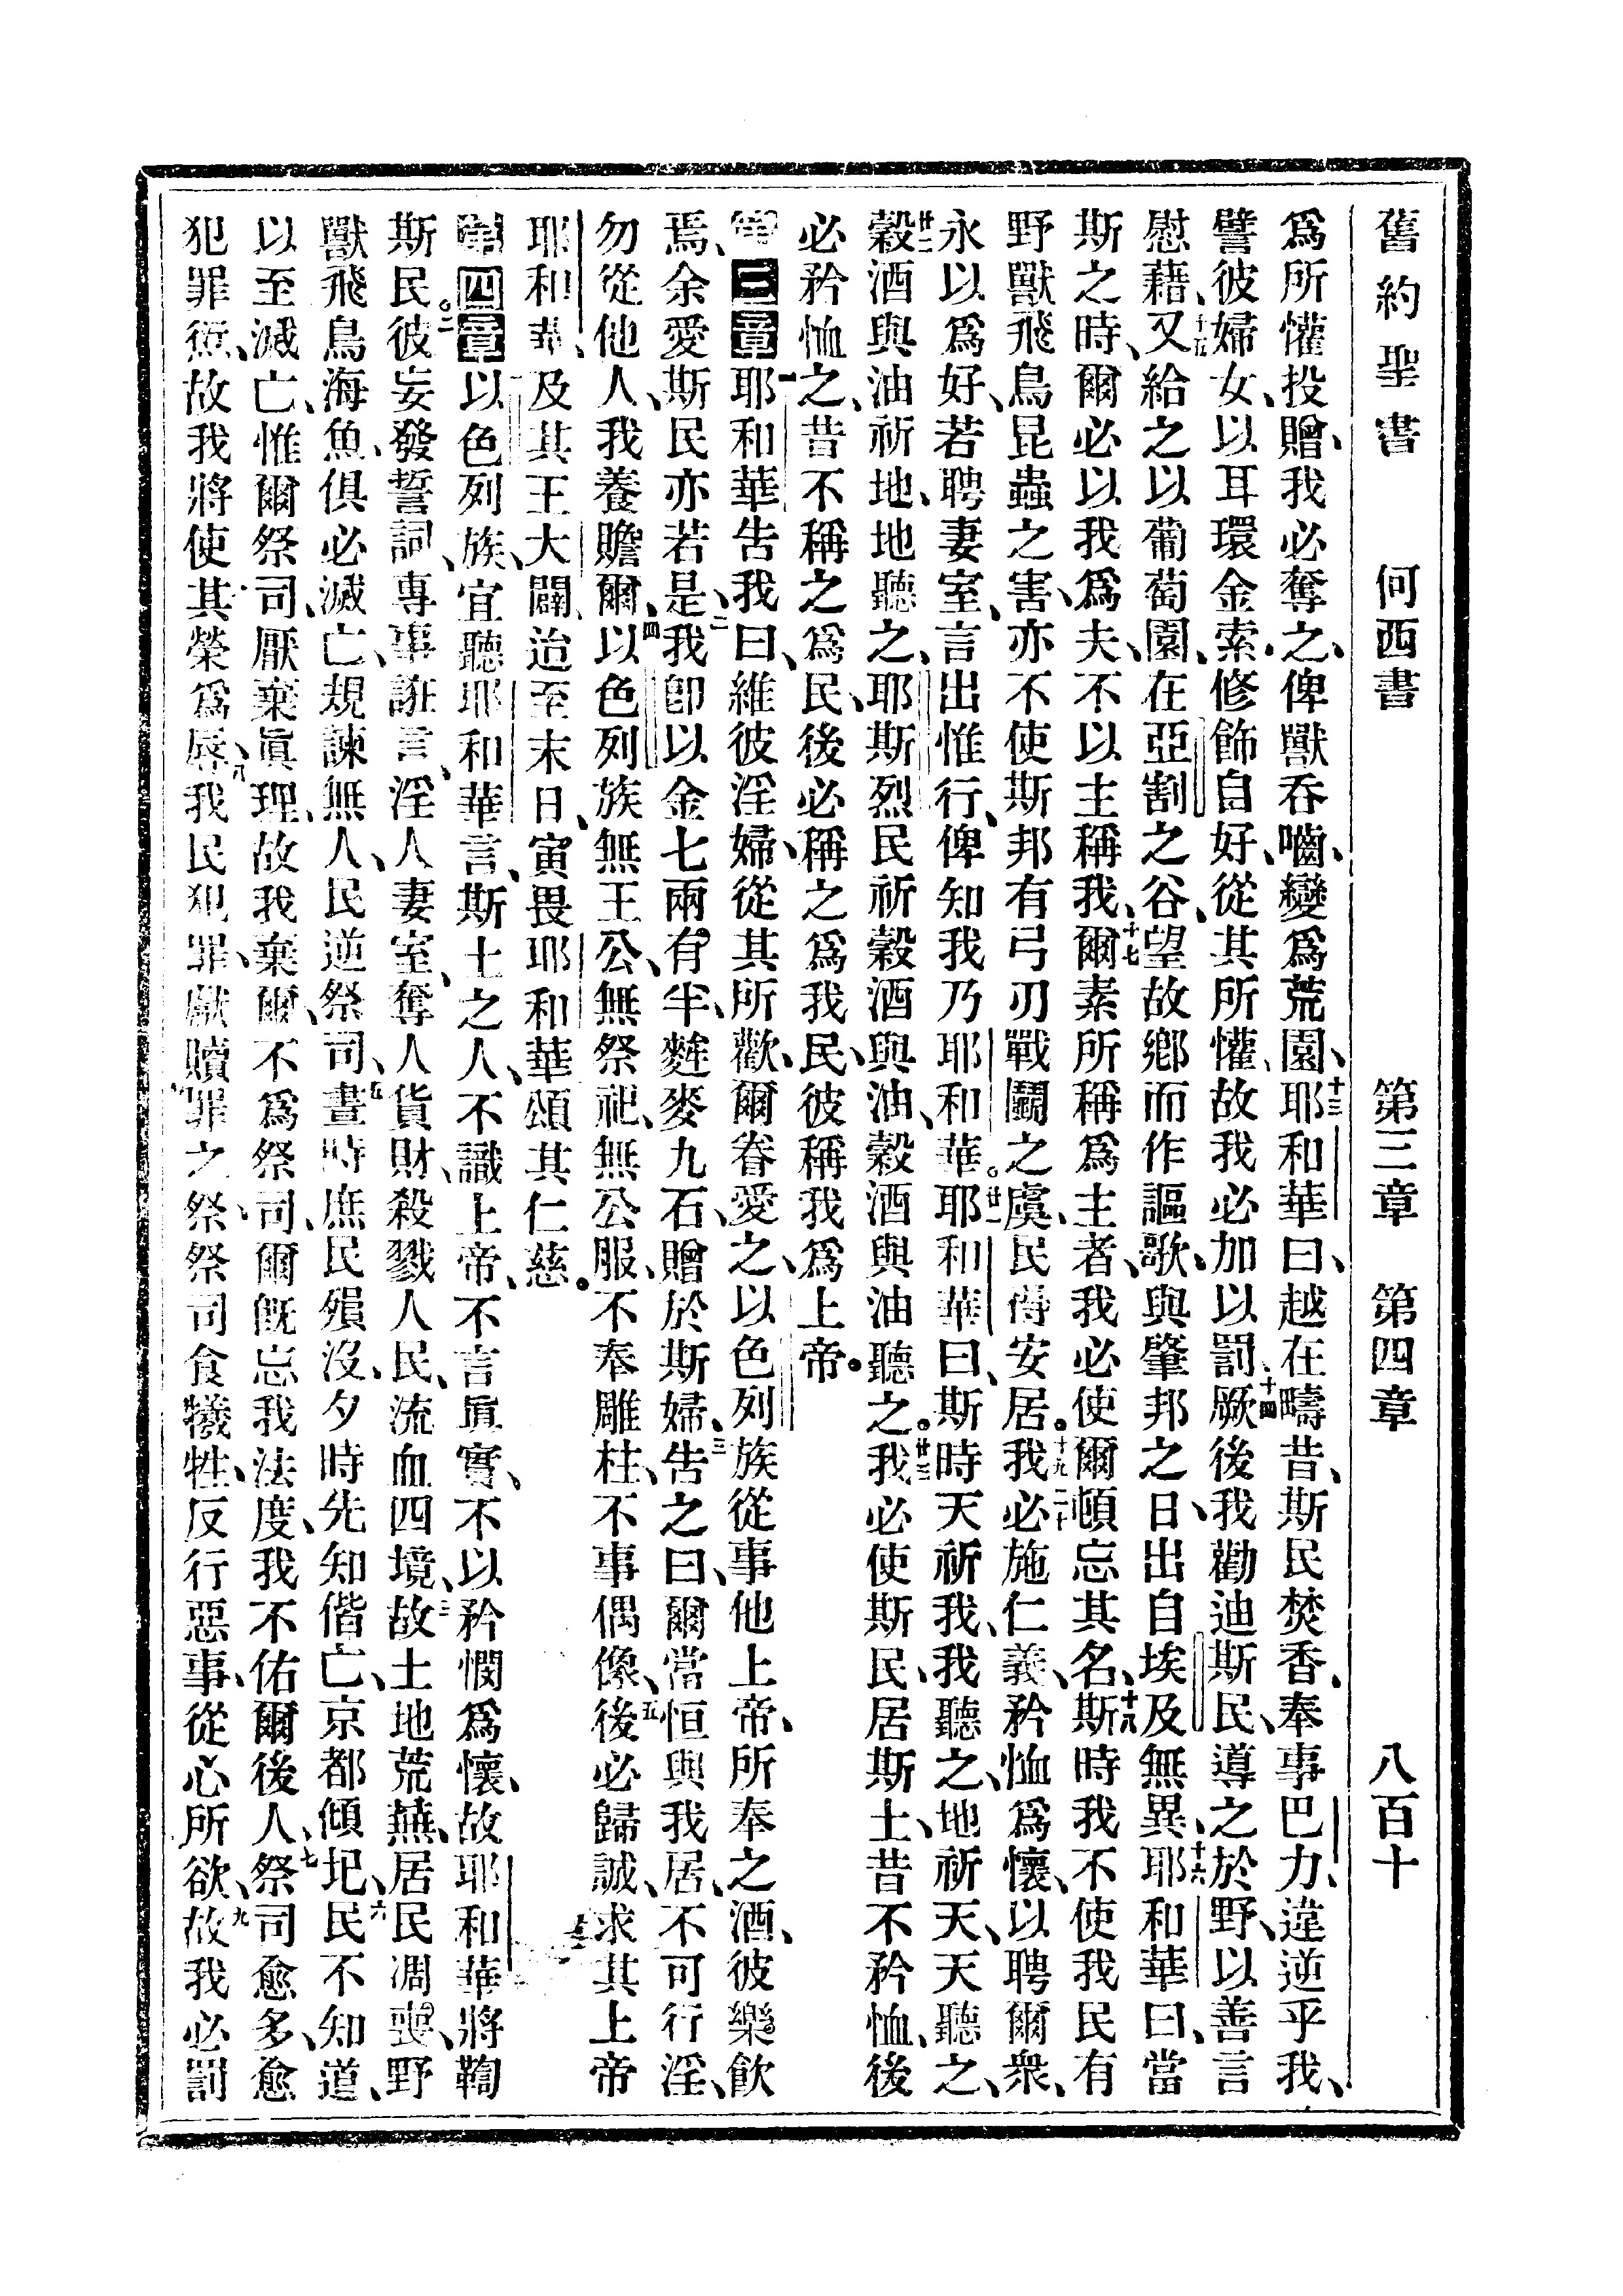 舊約聖書 何西書 第三章 第四章 八百十
爲所懽投贈、我必奪之、俾獸吞嚙、變爲荒園、十三耶和華曰、越在疇昔、斯民焚香、奉事巴力、違逆乎我、
譬彼婦女、以耳環金索、修飾自好、從其所懽、故我必加以罰、十四厥後我勸迪斯民、導之於野、以善言
慰藉、十五又給之以葡萄園、在亞割之谷、望故鄉而作謳歌、與肇邦之日、出自埃及無異、十六耶和華曰、當
斯之時、爾必以我爲夫、不以主稱我、十七爾素所稱爲主者、我必使爾頓忘其名、十八斯時我不使我民有
野獸飛鳥昆蟲之害、亦不使斯邦有弓刃戰鬭之虞、民得安居。十九我二十必施仁義、矜恤爲懷、以聘爾衆、
永以爲好、若聘妻室、言出惟行、俾知我乃耶和華。廿一耶和華曰、斯時天祈我、我聽之、地祈天、天聽之、
廿二穀酒與油祈地、地聽之、耶斯烈民祈穀酒與油、穀酒與油聽之。廿三我必使斯民、居斯土、昔不矜恤、後
必矜恤之、昔不稱之爲民、後必稱之爲我民、彼稱我爲上帝。
第三章一耶和華告我曰、維彼淫婦、從其所歡、爾眷愛之、以色列族從事他上帝、所奉之酒、彼樂飲
焉、余愛斯民亦若是、二我卽以金七兩有半、䴰麥九石、贈於斯婦、三告之曰、爾當恒與我居、不可行淫、
勿從他人、我養贍爾、四以色列族無王公、無祭祀、無公服、不奉雕柱、不事偶像、五後必歸誠、求其上帝
耶和華、及其王大闢、迨至末日、寅畏耶和華、頌其仁慈。
第四章以色列族、宜聽耶和華言、斯土之人、不識上帝、不言眞實、不以矜憫爲懷、故耶和華將鞫
斯民。二彼妄發誓詞、專事誑言、淫人妻室、奪人貨財、殺戮人民、流血四境、三故土地荒蕪、居民凋喪、野
獸飛鳥海魚、俱必滅亡、規諫無人、民逆祭司、五晝時庶民殞沒、夕時先知偕亡、京都傾圮、六民不知道、
以至滅亡、惟爾祭司、厭棄眞理、故我棄爾、不爲祭司、爾旣忘我法度、我不佑爾後人、七祭司愈多、愈
犯罪愆、故我將使其榮爲辱、八我民犯罪、獻贖罪之祭、祭司食犧牲、反行惡事、從心所欲、九故我必罰